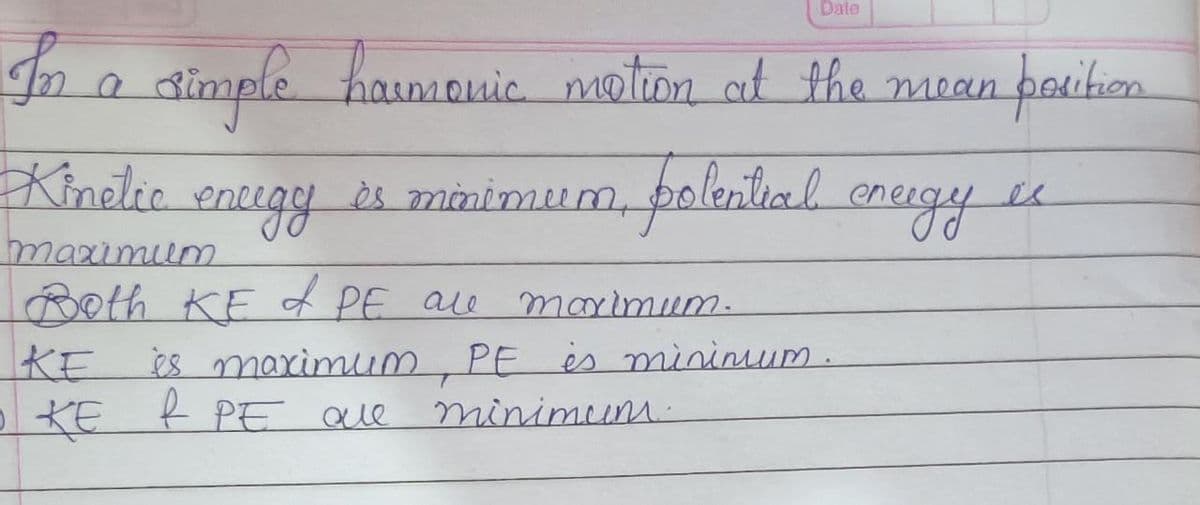 Date
In a simple harmonic motion at the mean position
Kinetic energy is minimum, potential energy is
maximum
Both KE & PE are maximum.
KE is maximum, PE is minimum.
KE & PE are minimum.